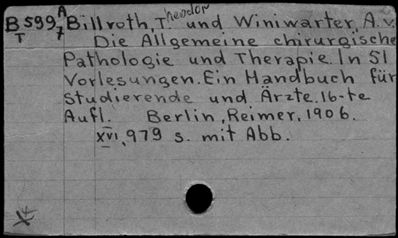 B 599 A/7 Billroth, Theodor und Winiwarter, A.v.
T Die Allgemeine chirurgische
Pathologie und Therapie. In 51
Vorlesungen. Ein Handbuch für
Studierende und Ärzte. 16-te
Aufl. Berlin, Reimer, 1906.
XVI, 979 s. mit Abb.